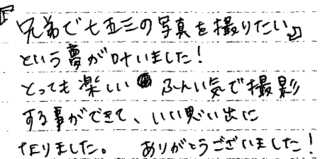 『兄弟で七五三の写真を撮りたい』
という夢が叶いました！
とっても楽しい ふんい気で撮影
する事ができて、いい思い出に
なりました。 ありがとうございました！